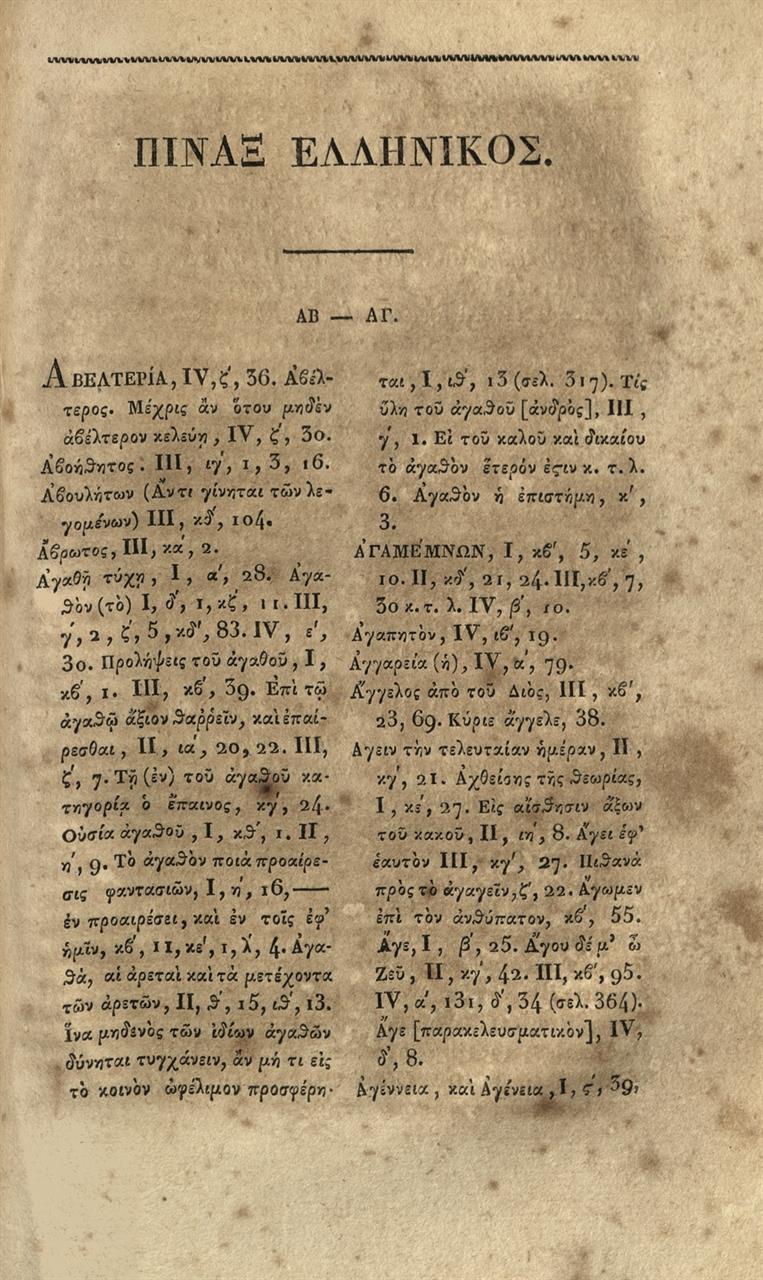 ΠΙΝΑΞ ΕΛΛΗΝΙΚΟΣ.
ΑΒ — ΑΓ.
ΑΒΕΛΤΕΡΊΑ, IV, ζ', 36. Ἀβέλ-
τερος. Μέχρις ἂν ὅτου μηδὲν
ἀβέλτερον κελεύῃ, IV, ζ', 30.
Ἀβοήθητος. III, ιγ', 1, 3, 16.
Ἀβουλήτων (Ἄντι γίνηται τῶν λε-
γομένων) III, κδ', 104.
Ἄβρωτος, III, κα', 2.
Ἀγαθῇ τύχῃ, I, α', 28. Ἀγα-
θὸν (τὸ) I, δ', 1, κζ', 11. III,
γ', 2, ζ', 5, κδ', 83. IV, ε',
30. Προλήψεις τοῦ ἀγαθοῦ, I,
κβ', 1. III, κβ', 39. Ἐπὶ τῷ
ἀγαθῷ ἄξιον θαῤῥεῖν, καὶ ἐπαί-
ρεσθαι, II, ια', 20, 22. III,
ζ', 7. Τῇ (ἐν) τοῦ ἀγαθοῦ κα-
τηγορίᾳ ὁ ἔπαινος, κγ', 24.
Οὐσία ἀγαθοῦ, I, κθ', 1. II,
η', 9. Τὸ ἀγαθὸν ποιὰ προαίρε-
σις φαντασιῶν, I, η', 16,——
ἐν προαιρέσει, καὶ ἐν τοῖς ἐφ'
ἡμῖν, κβ', 11, κε', 1, λ', 4. Ἀγα-
θὰ, αἱ ἀρεταὶ καὶ τὰ μετέχοντα
τῶν ἀρετῶν, II, θ', 15, ιθ', 13.
Ἵνα μηδενὸς τῶν ἰδίων ἀγαθῶν
δύνηται τυγχάνειν, ἂν μή τι εἰς
τὸ κοινὸν ὠφέλιμον προσφέρη-
ται, I, ιθ', 13 (σελ. 317). Τίς
ὕλη τοῦ ἀγαθοῦ [ἀνδρὸς], III,
γ', 1. Εἰ τοῦ καλοῦ καὶ δικαίου
τὸ ἀγαθὸν ἕτερόν ἐϛιν κ. τ. λ.
6. Ἀγαθὸν ἡ ἐπιστήμη, κ',
3.
ἈΓΑΜΈΜΝΩΝ, I, κβ', 5, κε',
10. II, κδ', 21, 24. III, κβ', 7,
30 κ. τ. λ. IV, β', 10.
Ἀγαπητὸν, IV, ιβ', 19.
Ἀγγαρεία (ἡ), IV, α', 79.
Ἄγγελος ἀπὸ τοῦ Διὸς, III, κβ',
23, 69. Κύριε ἄγγελε, 38.
Ἄγειν τὴν τελευταίαν ἡμέραν, II,
κγ', 21. Ἀχθείσης τῆς θεωρίας,
I, κε', 27. Εἰς αἴσθησιν ἄξων
τοῦ κακοῦ, II, ιη', 8. Ἄγει ἐφ'
ἑαυτὸν III, κγ', 27. Πιθανὰ
πρὸς τὸ ἀγαγεῖν, ζ', 22. Ἄγωμεν
ἐπὶ τὸν ἀνθύπατον, κβ', 55.
Ἄγε, I, β', 25. Ἄγου δέ μ' ὦ
Ζεῦ, II, κγ', 42. III, κβ', 95.
IV, α', 131, δ', 34 (σελ. 364).
Ἄγε [παρακελευσματικὸν], IV,
δ', 8.
Ἀγέννεια, καὶ Ἀγένεια, I, ϛ', 39,